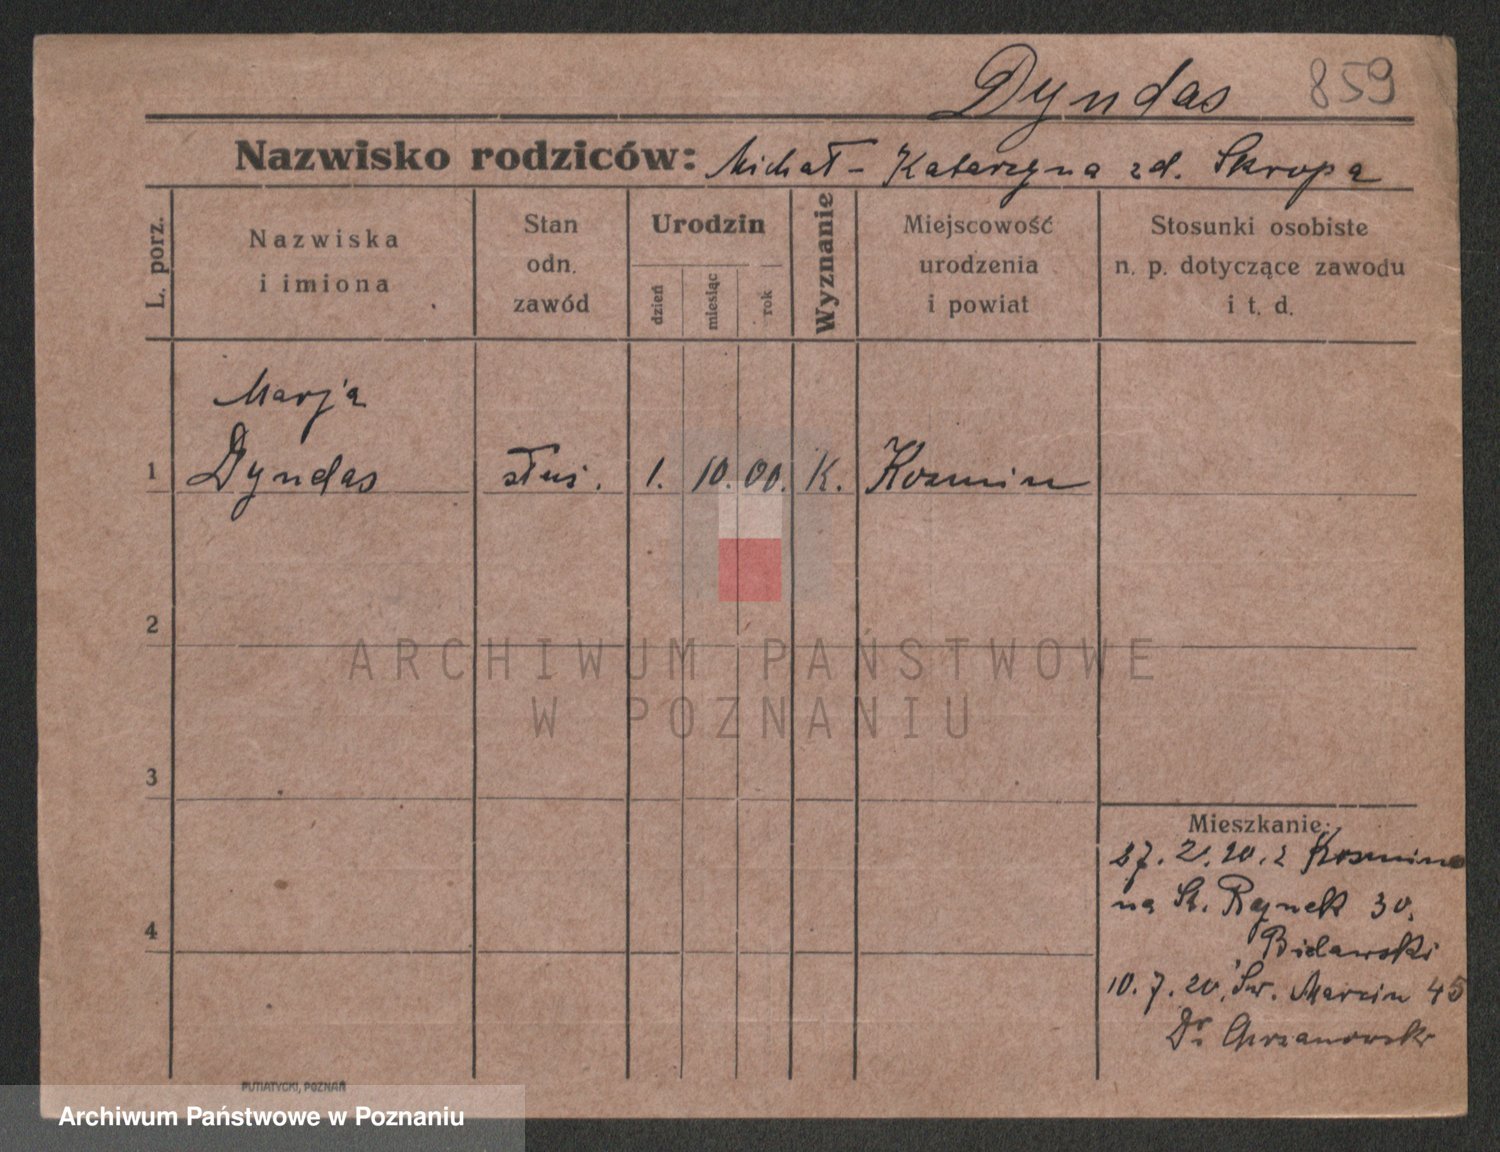 Dyndas 859
Nazwisko rodziców: Michał - Katarzyna zd. Skropa
L. porz.
Nazwiska i imiona
Stan odn. zawód
Urodzin
dzień
miesiąc
rok
Wyznanie
Miejscowość urodzenia i powiat
Stosunki osobiste n. p. dotyczące zawodu i t. d.
Marja
1 Dyndas służ. 1. 10. 00. K. Kozmin
2
ARCHIWUM PAŃSTWOWE
W POZNANIU
3
Mieszkanie:
27. 2. 20. z Kozmina
na St. Rynek 30.
4
Bielawski
10. 7. 20. Św. Marcin 45
Dr. Chrzanowski
PUTIATYCKI, POZNAŃ
Archiwum Państwowe w Poznaniu